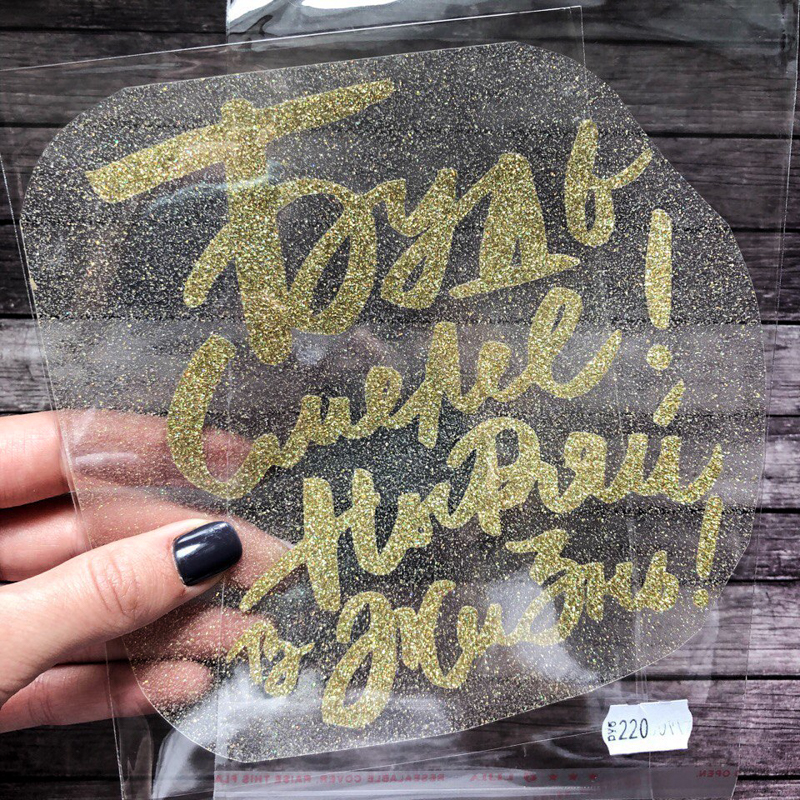 Будь
Смелее!
Ныряй
в Жизнь!
220
RESEALABLE COVER: RAISE THIS
OPEN